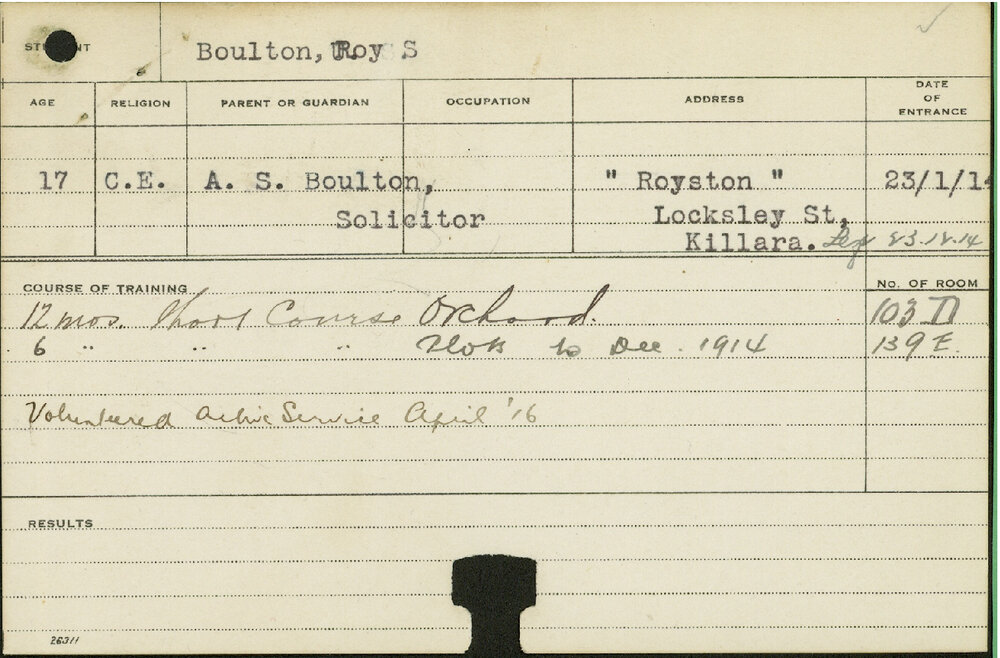 STUDENT Boulton, Roy S
AGE RELIGION PARENT OR GUARDIAN OCCUPATION ADDRESS DATE OF ENTRANCE
17 C.E. A. S. Boulton, " Royston " 23/1/14
Solicitor Locksley St,
Killara. 23.12.14
COURSE OF TRAINING No. OF ROOM
12 mos. Short Course Orchard. 103 D
6 " " " to Dec. 1914 139 E.
Volunteered Active Service April '16
RESULTS
26311